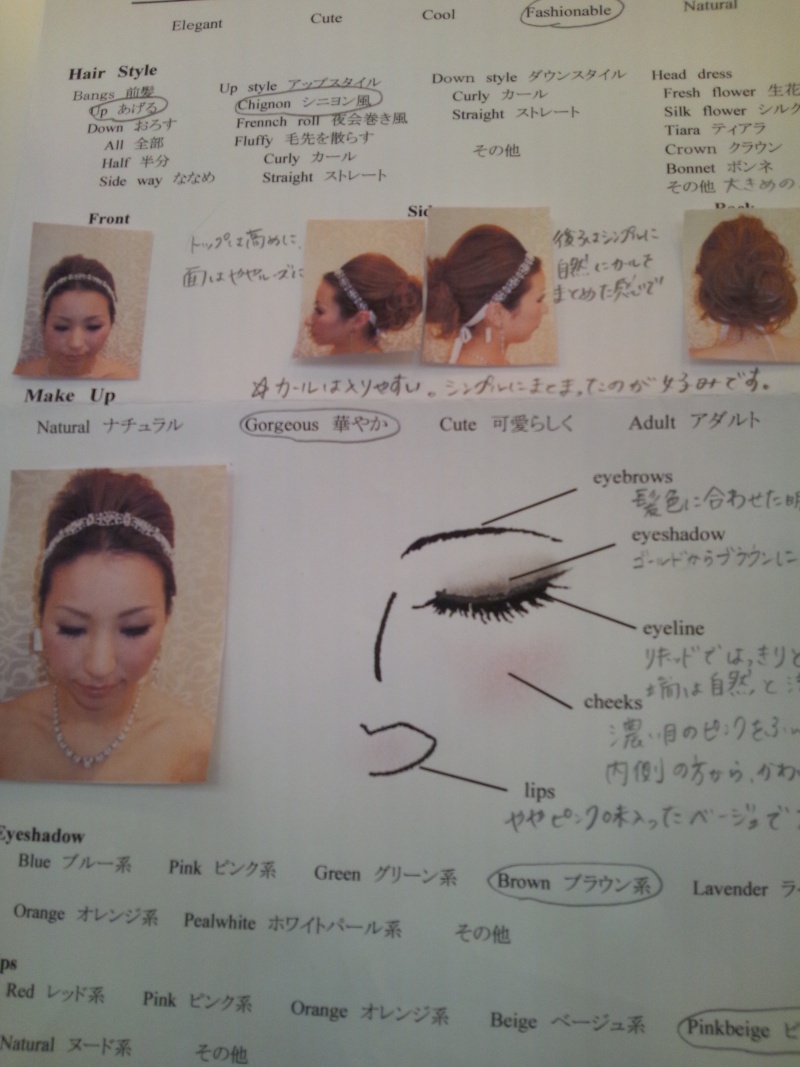 Elegant Cute Cool Fashionable Natural
Hair Style
Bangs 前髪
Up あげる
Down おろす
All 全部
Half 半分
Side way ななめ
Up style アップスタイル
Chignon シニヨン風
Frennch roll 夜会巻き風
Fluffy 毛先を散らす
Curly カール
Straight ストレート
Down style ダウンスタイル
Curly カール
Straight ストレート
その他
Head dress
Fresh flower 生花
Silk flower シルク
Tiara ティアラ
Crown クラウン
Bonnet ボンネ
その他 大きめの
Front
トップは高めに、
面はややルーズに
後ろはシンプルに
自然にカールを
まとめた感じで
☆カールは入りやすい。シンプルにまとまったのが好みです。
Make Up
Natural ナチュラル Gorgeous 華やか Cute 可愛らしく Adult アダルト
eyebrows
髪色に合わせた明
eyeshadow
ゴールドからブラウンに
eyeline
リキッドではっきりと
端は自然と
cheeks
濃い目のピンクをふん
内側の方から、かわ
lips
ややピンク味入ったベージュで
Eyeshadow
Blue ブルー系 Pink ピンク系 Green グリーン系 Brown ブラウン系 Lavender ラ
Orange オレンジ系 Pealwhite ホワイトパール系 その他
ps
Red レッド系 Pink ピンク系 Orange オレンジ系 Beige ベージュ系 Pinkbeige ピ
Natural ヌード系 その他